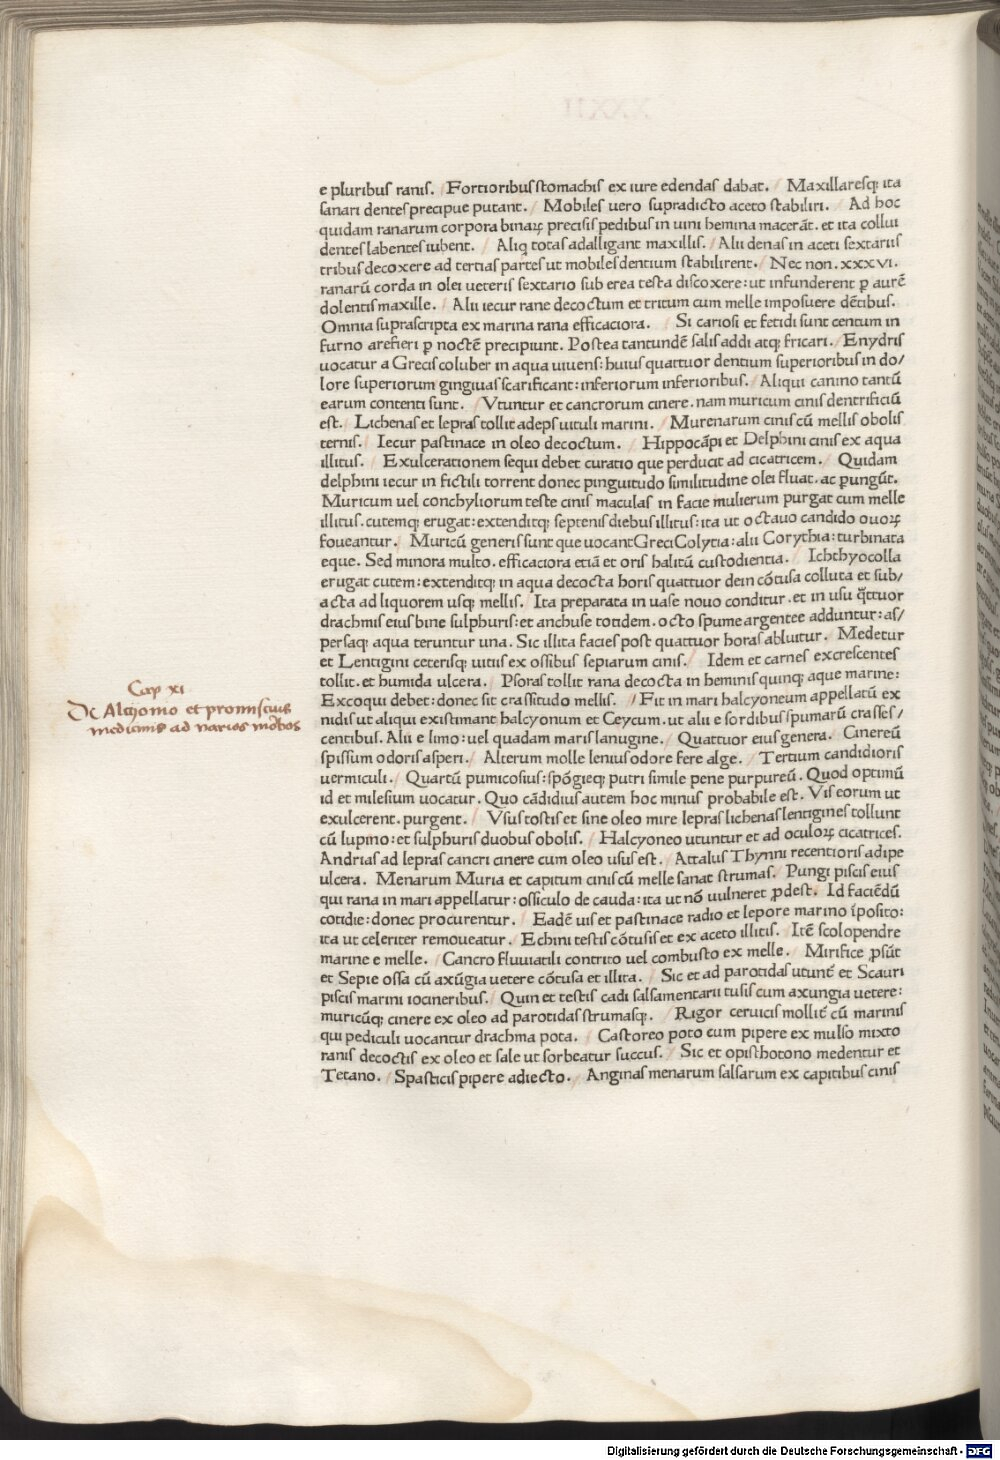 e pluribus ranis. Fortioribus stomachis ex iure edendas dabat. Maxillaresqꝫ ita
sanari dentes precipue putant. Mobiles uero supradicto aceto stabiliri. Ad hoc
quidam ranarum corpora binaꝝ precisis pedibus in uini hemina macerãt. et ita collui
dentes labentes iubent. Aliq̨ totas adalligant maxillis. Alii denas in aceti sextariis
tribus decoxere ad tertias partes ut mobiles dentium stabilirent. Nec non. xxxvi.
ranarũ corda in olei ueteris sextario sub erea testa discoxere: ut infunderent ꝑ aurẽ
dolentis maxille. Alii iecur rane decoctum et tritum cum melle imposuere dẽtibus.
Omnia suprascripta ex marina rana efficaciora. Si cariosi et fetidi sunt centum in
furno arefieri ꝑ noctẽ precipiunt. Postea tantundẽ salis addi atqꝫ fricari. Enydris
uocatur a Grecis coluber in aqua uiuens: huius quattuor dentium superioribus in do/
lore superiorum gingiuas scarificant: inferiorum inferioribus. Aliqui canino tantũ
earum contenti sunt. Vtuntur et cancrorum cinere. nam muricum cinis dentrificiũ
est. Lichenas et lepras tollit adeps uituli marini. Murenarum cinis cũ mellis obolis
ternis. Iecur pastinace in oleo decoctum. Hippocãpi et Delphini cinis ex aqua
illitus. Exulcerationem sequi debet curatio que perducit ad cicatricem. Quidam
delphini iecur in fictili torrent donec pinguitudo similitudine olei fluat. ac ꝑungũt.
Muricum uel conchyliorum teste cinis maculas in facie mulierum purgat cum melle
illitus. cutemqꝫ erugat: extenditqꝫ septenis diebus illitus: ita ut octauo candido ouoꝝ
foueantur. Muricũ generis sunt que uocant Greci Colycia: alii Corythia: turbinata
eque. Sed minora multo. efficaciora etiã et oris halitũ custodientia. Ichthyocolla
erugat cutem: extenditqꝫ in aqua decocta horis quattuor dein cõtusa colluta et sub/
acta ad liquorem usqꝫ mellis. Ita preparata in uase nouo conditur. et in usu q̃ttuor
drachmis eius bine sulphuris: et anchuse totidem. octo spume argentee adduntur: as/
persaqꝫ aqua teruntur una. Sic illita facies post quattuor horas abluitur. Medetur
et Lentigini ceterisqꝫ uitiis ex ossibus sepiarum cinis. Idem et carnes excrescentes
tollit. et humida ulcera. Psoras tollit rana decocta in heminis quinqꝫ aque marine:
Excoqui debet: donec sit crassitudo mellis. Fit in mari halcyoneum appellatũ ex
nidis ut aliqui existimant halcyonum et Ceycum. ut alii e sordibus spumarũ crasses/
centibus. Alii e limo: uel quadam maris lanugine. Quattuor eius genera. Cinereũ
spissum odoris asperi. Alterum molle lenius odore fere alge. Tertium candidioris
uermiculi. Quartũ pumicosius: spõgieqꝫ putri simile pene purpureũ. Quod optimũ
id et milesium uocatur. Quo cãdidius autem hoc minus probabile est. Vis eorum ut
exulcerent. purgent. Vsus tostis et sine oleo mire lepras lichenas lentigines tollunt
cũ lupino: et sulphuris duobus obolis. Halcyoneo utuntur et ad oculoꝝ cicatrices.
Andrias ad lepras cancri cinere cum oleo usus est. Attalus Thynni recentioris adipe
ulcera. Menarum Muria et capitum cinis cũ melle sanat strumas. Pungi piscis eius
qui rana in mari appellatur: ossiculo de cauda: ita ut nõ uulneret ꝓdest. Id faciẽdũ
cotidie: donec procurentur. Eadẽ uis et pastinace radio et lepore marino ĩposito:
ita ut celeriter remoueatur. Echini testis cõtusis et ex aceto illitis. Itẽ scolopendre
marine e melle. Cancro fluuiatili contrito uel combusto ex melle. Mirifice ꝓsũt
et Sepie ossa cũ axũgia uetere cõtusa et illita. Sic et ad parotidas utunt̃ et Scauri
piscis marini iocineribus. Quin et testis cadi salsamentarii tusis cum axungia uetere:
muricũqꝫ cinere ex oleo ad parotidas strumasqꝫ. Rigor ceruicis mollit̃ cũ marinis
qui pediculi uocantur drachma pota. Castoreo poto cum pipere ex mulso mixto
ranis decoctis ex oleo et sale ut sorbeatur succus. Sic et opisthotono medentur et
Tetano. Spasticis pipere adiecto. Anginas menarum salsarum ex capitibus cinis
Cap xi
De Alcyonio et promiscuis
medicinis ad varios morbos
Digitalisierung gefördert durch die Deutsche Forschungsgemeinschaft - DFG